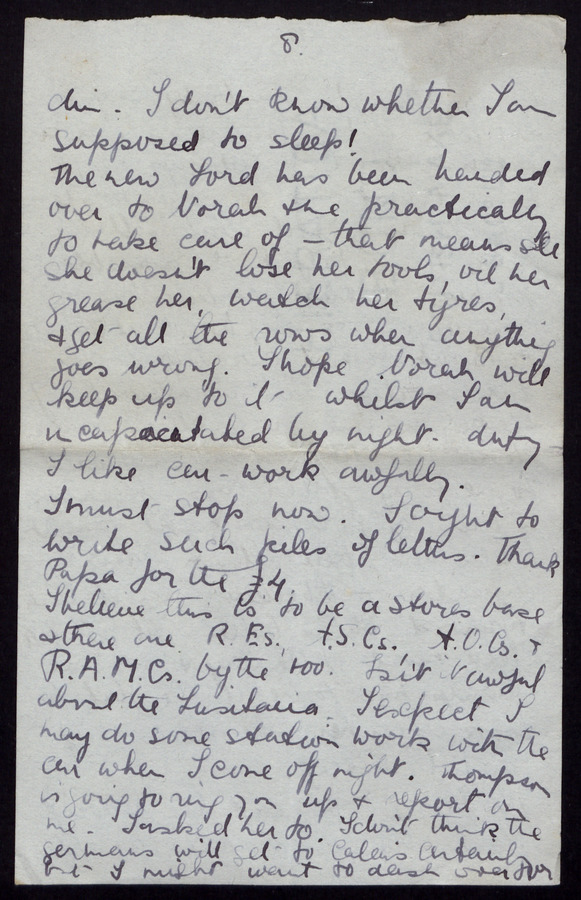 8.
din. I don't know whether I am
supposed to sleep!
The new Ford has been handed
over to Norah & me practically
to take care of – that means see
she doesn't lose her tools, oil her
grease her, watch her tyres,
& get all the rows when anything
goes wrong. I hope Norah will
keep up to it whilst I am
incapacitated by night-duty –
I like car-work awfully.
I must stop now. I ought to
write such piles of letters. Thank
Papa for the £4.
I believe this is to be a stores base
& there are R.Es, A.S.Cs. A.O.Cs. &
R.A.M.Cs. by the 100. Isn't it awful
about the Lusitania. I expect I
may do some station work with the
car when I come off night. Thompson
is going to ring you up & report on
me. I asked her to. I don't think the
germans will get to Calais certainly
but I might want to dash over for